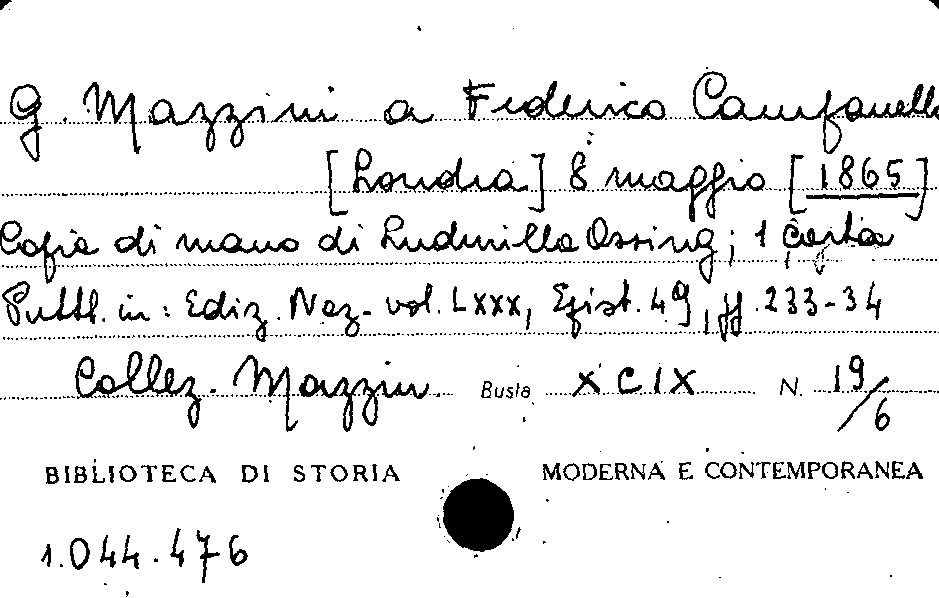 G. Mazzini a Federico Campanella
[Londra] 8 maggio [1865]
Copia di mano di Ludmilla Assing; 1 carta
Pubbl. in: Ediz. Naz. vol. LXXX, Epist. 49, pp. 233-34
Collez. Mazzin. Busta XCIX N. 19/6
BIBLIOTECA DI STORIA MODERNA E CONTEMPORANEA
1.044.476